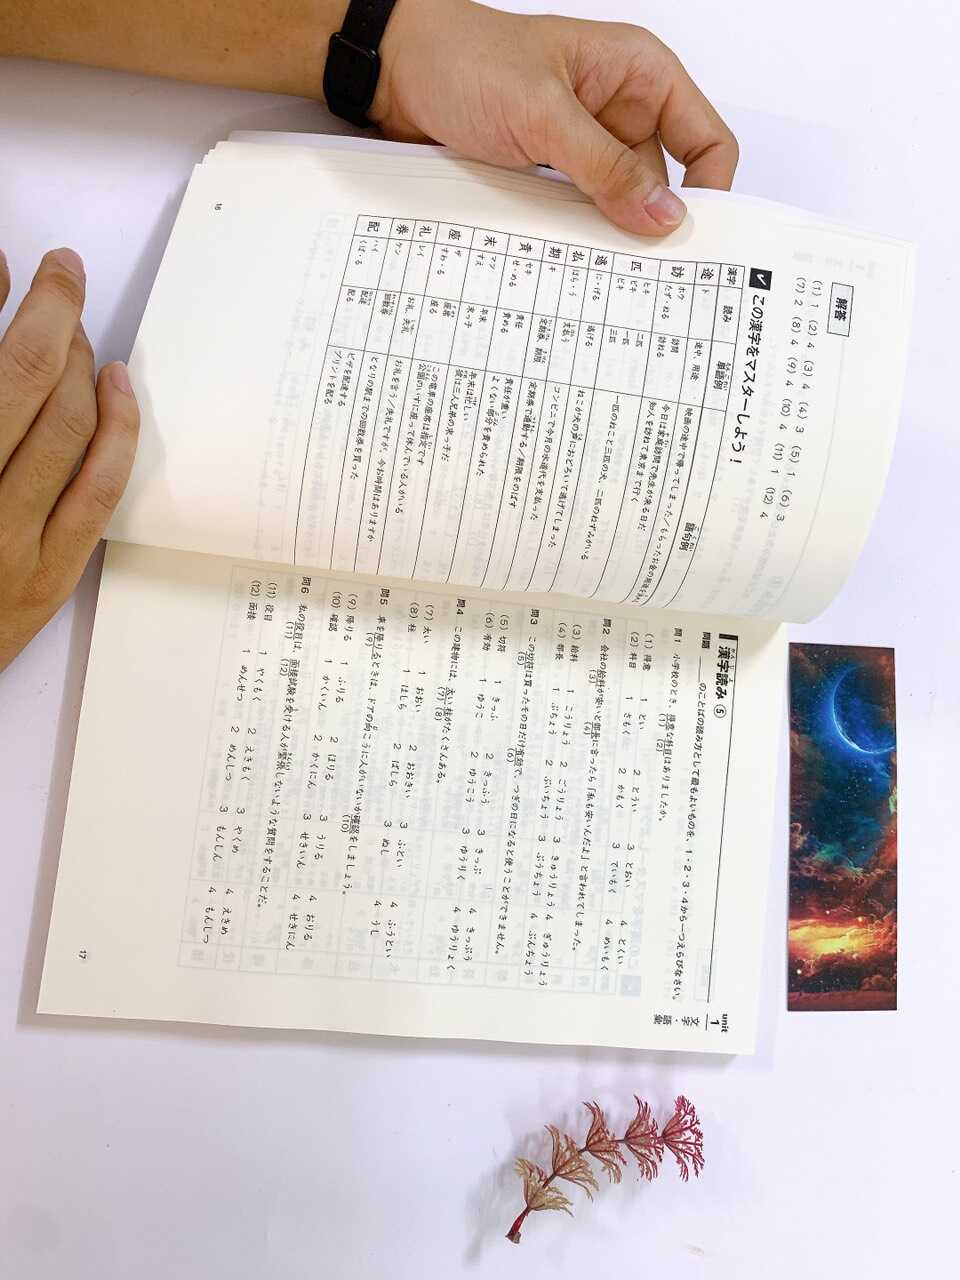 解答
(1) 1 (2) 4 (3) 4 (4) 3 (5) 1 (6) 3
(7) 2 (8) 4 (9) 4 (10) 4 (11) 1 (12) 4
✓ この漢字をマスターしよう！
漢字 読み 単語例 語句例
途 ト 途中、用途 映画の途中で帰ってしまった／もらったお金の用途を
訪 ホウ たず・ねる 訪問 訪ねる 今日は家庭訪問で先生が来る日だ
知人を訪ねて東京まで行く
匹 ヒキ ビキ ピキ 二匹 一匹 三匹 一匹のねこと三匹の犬、二匹のねずみがいる
逃 に・げる 逃げる ねこが犬の声におどろいて逃げてしまった
払 はら・う 支払う コンビニで今月の水道代を支払った
期 キ 定期券、期限 定期券で通勤する／期限をのばす
責 セキ せ・める 責任 責める 責任が重い
よくない部分を責められた
末 マツ すえ 年末 末っ子 年末は忙しい
彼は三人兄弟の末っ子だ
座 ザ すわ・る 座席 座る この電車の座席は指定です
公園のいすに座って休んでいる人がいる
礼 レイ お礼、失礼 お礼を言う／失礼ですが、今お時間はありますか
券 ケン 回数券 となりの駅までの回数券を買った
配 ハイ くば・る 配達 配る ピザを配達する
プリントを配る
16
unit
1
文字・語彙
漢字読み ⑤
問題 ＿＿のことばの読み方として最もよいものを、1・2・3・4から一つえらびなさい。
問1 小学校のとき、得意な科目はありましたか。
(1) (2)
(1) 得意 1 とい 2 とうい 3 とおい 4 とくい
(2) 科目 1 さもく 2 かもく 3 ていもく 4 めいもく
問2 会社の給料が安いと部長に言ったら「私も安いんだよ」と言われてしまった。
(3) (4)
(3) 給料 1 こうりょう 2 ごうりょう 3 きゅうりょう 4 ぎゅうりょう
(4) 部長 1 ぶちょう 2 ぶいちょう 3 ぶうちょう 4 ぶんちょう
問3 この切符は買ったその日だけ有効で、つぎの日になると使うことができません。
(5) (6)
(5) 切符 1 きっふ 2 きっふう 3 きっぷ 4 きっぷう
(6) 有効 1 ゆうこ 2 ゆうこう 3 ゆうりく 4 ゆうりょく
問4 この建物には、太い柱がたくさんある。
(7) (8)
(7) 太い 1 おおい 2 おおきい 3 ふとい 4 ふうとい
(8) 柱 1 はしら 2 ばしら 3 ぬし 4 うし
問5 車を降りるときは、ドアの向こうに人がいないか確認をしましょう。
(9) (10)
(9) 降りる 1 ふりる 2 ほりる 3 うりる 4 おりる
(10) 確認 1 かくいん 2 かくにん 3 せきいん 4 せきにん
問6 私の役目は、面接試験を受ける人が緊張しないような質問をすることだ。
(11) (12)
(11) 役目 1 やくもく 2 えきもく 3 やくめ 4 えきめ
(12) 面接 1 めんせつ 2 めんしつ 3 もんしん 4 もんしつ
17